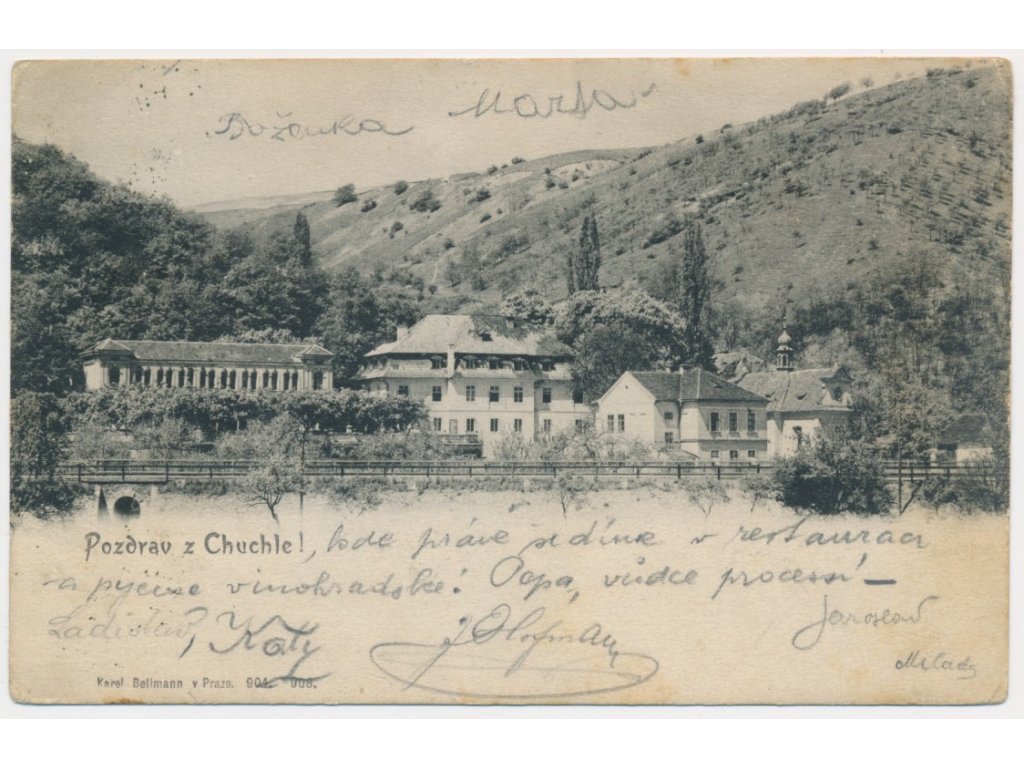 Boženka Marta
Pozdrav z Chuchle!, kde právě sedíme v restauraci
a pijeme vinohradské! Pepa, vůdce processí —
Ladislav, Katy J Hofmann Jaroslav
Milada
Karel Bellmann v Praze. 904. - 908.